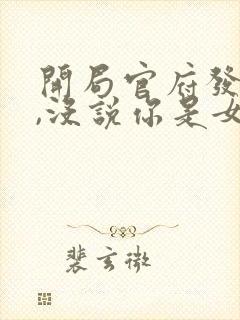 開局官府發
,沒說你是女
裴玄微